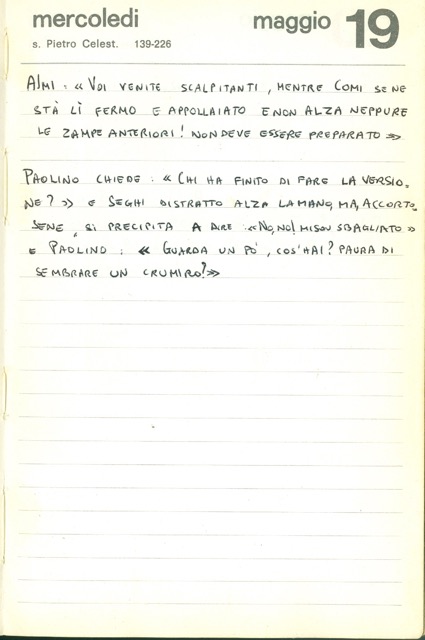 mercoledì maggio 19
s. Pietro Celest. 139-226
AIMI: « VOI VENITE SCALPITANTI, MENTRE COMI SE NE
STÀ LÌ FERMO E APPOLLAIATO E NON ALZA NEPPURE
LE ZAMPE ANTERIORI! NON DEVE ESSERE PREPARATO »
PAOLINO CHIEDE: « CHI HA FINITO DI FARE LA VERSIO-
NE? » E SEGHI DISTRATTO ALZA LA MANO, MA, ACCORTO-
SENE, SI PRECIPITA A DIRE: «NO, NO! MI SON SBAGLIATO »
E PAOLINO: « GUARDA UN PÒ, COS'HAI? PAURA DI
SEMBRARE UN CRUMIRO?»